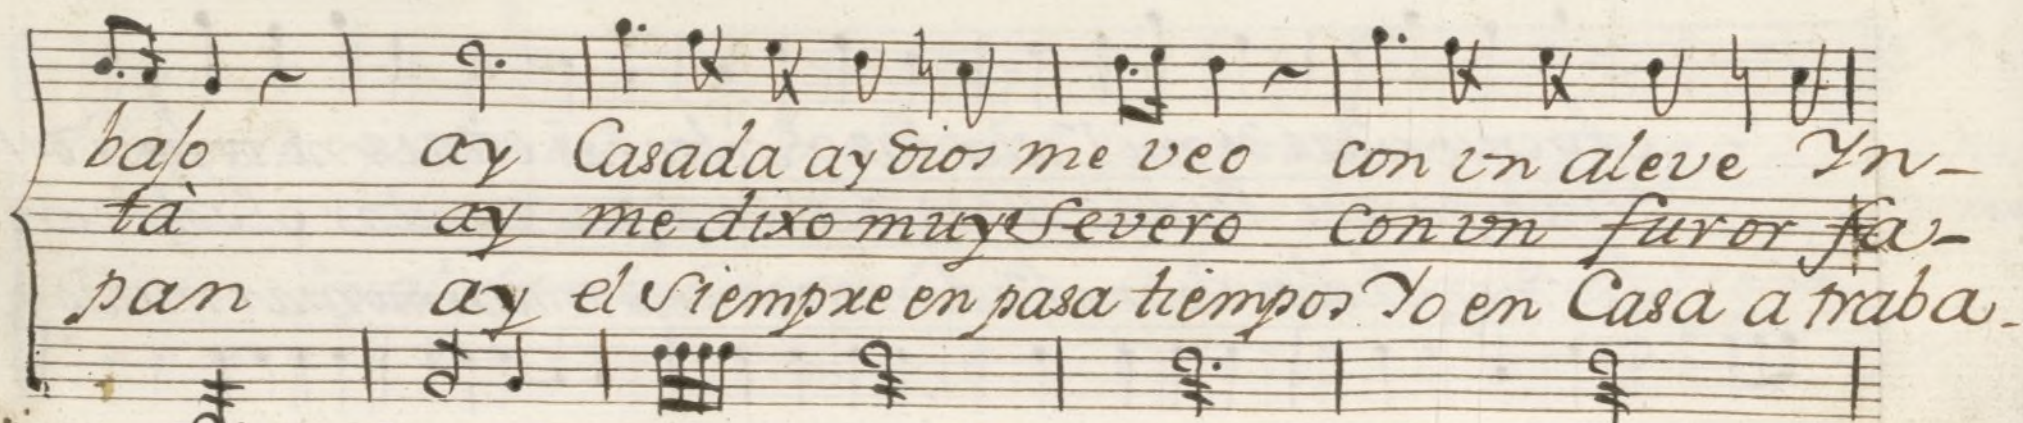 bajo ay Casada ay Dios me veo con un aleve Yn-
tà ay me dixo muy Severo con vn furor fa-
pan ay el Siempre en pasa tiempos Yo en Casa a traba-